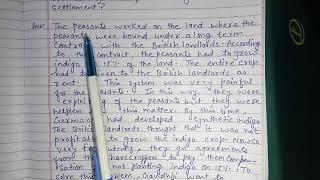 settlement?
Ans: The peasants worked on the land where the
peasants were bound under a long term
contract with the British landlords. According
to the contract, the peasants had to grow
indigo 15% of the land. The entire crop
had to given to the British landlords as
rent. This system was very painful
for the peasants. In this way, they were
exploiting of the peasants but they were
helpless in this matter. By this time
Germany had developed synthetic indigo
The British landlords thought that it was not
profitable to grow the indigo crop. Now so
very they agreements
from sharecroppers to pay them compen-
sation not planting indigo on 15%. To
solve this problem, Gandhiji went to